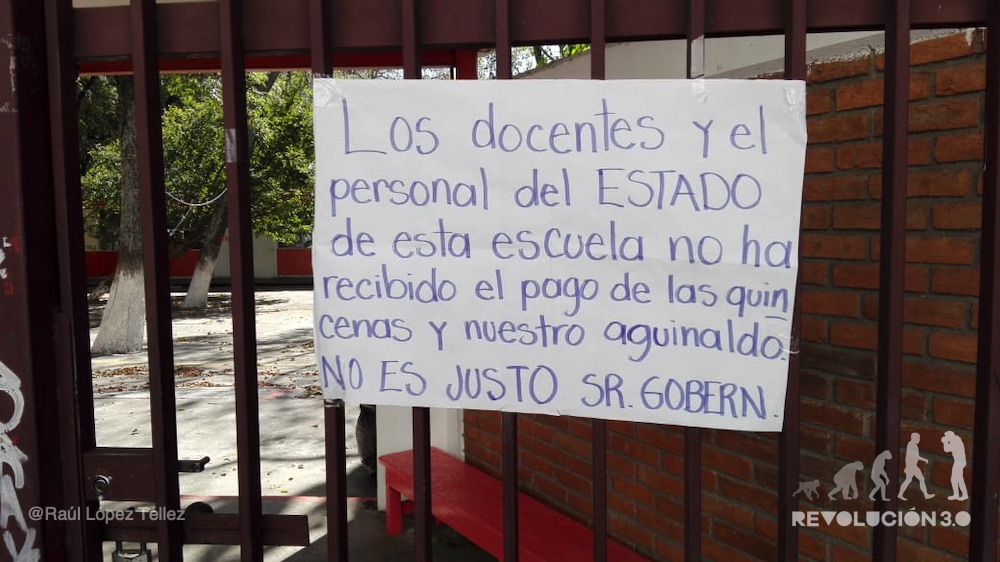 Los docentes y el
personal del ESTADO
de esta escuela no ha
recibido el pago de las quin
cenas y nuestro aguinaldo.
NO ES JUSTO SR. GOBERN.
@Raúl López Téllez
REVOLUCIÓN 3.0